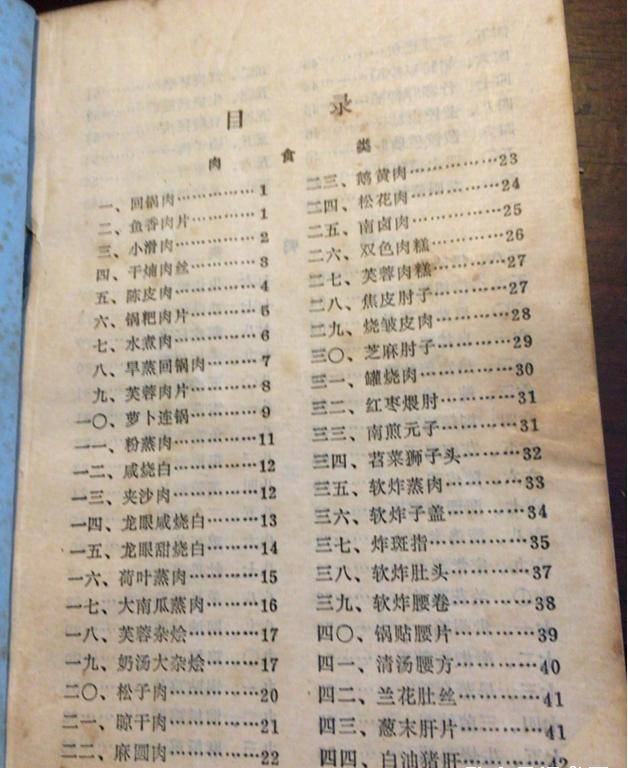 目录
肉食类
一、回锅肉……………1
二、鱼香肉片…………1
三、小滑肉……………2
四、干煵肉丝…………3
五、陈皮肉……………4
六、锅粑肉片…………5
七、水煮肉……………6
八、旱蒸回锅肉………7
九、芙蓉肉片…………8
一〇、萝卜连锅………9
一一、粉蒸肉…………11
一二、咸烧白…………12
一三、夹沙肉…………12
一四、龙眼咸烧白………13
一五、龙眼甜烧白………14
一六、荷叶蒸肉…………15
一七、大南瓜蒸肉………16
一八、芙蓉杂烩…………17
一九、奶汤大杂烩………17
二〇、松子肉……………20
二一、晾干肉……………21
二二、麻圆肉……………22
二三、鹅黄肉……………23
二四、松花肉……………24
二五、南卤肉……………25
二六、双色肉糕…………26
二七、芙蓉肉糕…………27
二八、焦皮肘子…………27
二九、烧皱皮肉…………28
三〇、芝麻肘子…………29
三一、罐烧肉……………30
三二、红枣煨肘…………31
三三、南煎元子…………31
三四、苕菜狮子头………32
三五、软炸蒸肉…………33
三六、软炸子盖…………34
三七、炸斑指……………35
三八、软炸肚头…………37
三九、软炸腰卷…………38
四〇、锅贴腰片…………39
四一、清汤腰方…………40
四二、兰花肚丝…………41
四三、葱末肝片…………41
四四、白油猪肝…………42